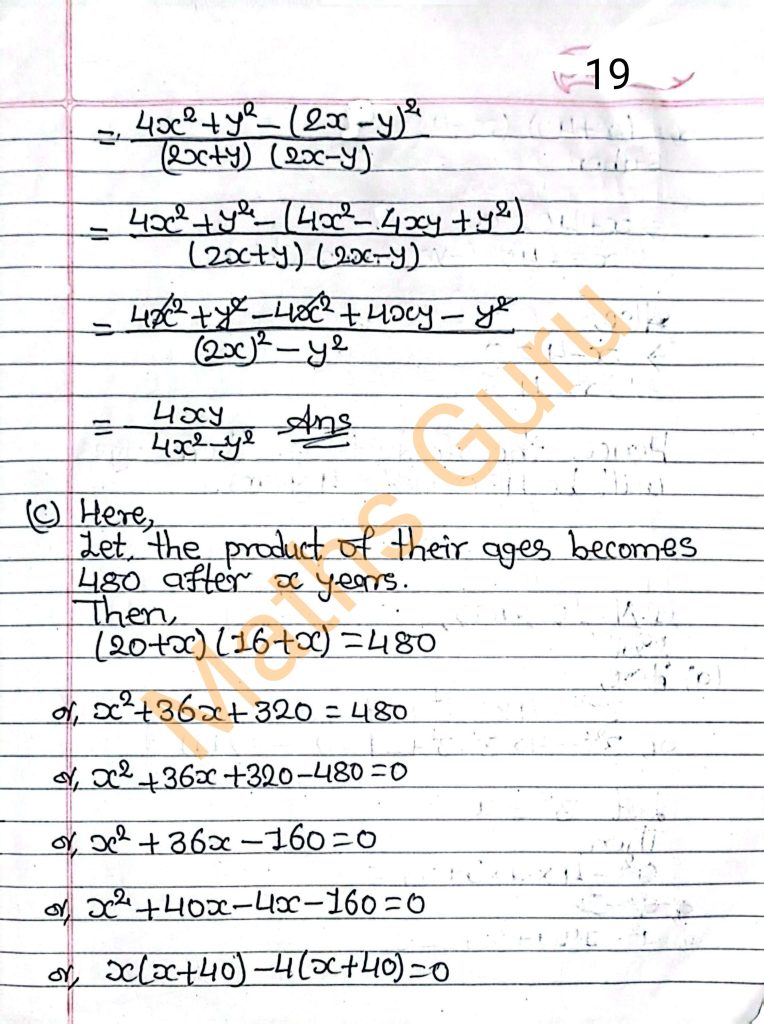 19
= 4x² + y² – (2x – y)² / (2x+y) (2x–y)
= 4x² + y² – (4x² – 4xy + y²) / (2x+y) (2x–y)
= 4x² + y² – 4x² + 4xy – y² / (2x)² – y²
= 4xy / 4x² – y² Ans
(C) Here,
Let, the product of their ages becomes
480 after x years.
Then,
(20+x) (16+x) = 480
or, x² + 36x + 320 = 480
or, x² + 36x + 320 – 480 = 0
or, x² + 36x – 160 = 0
or, x² + 40x – 4x – 160 = 0
or, x(x+40) – 4(x+40) = 0
Maths Guru